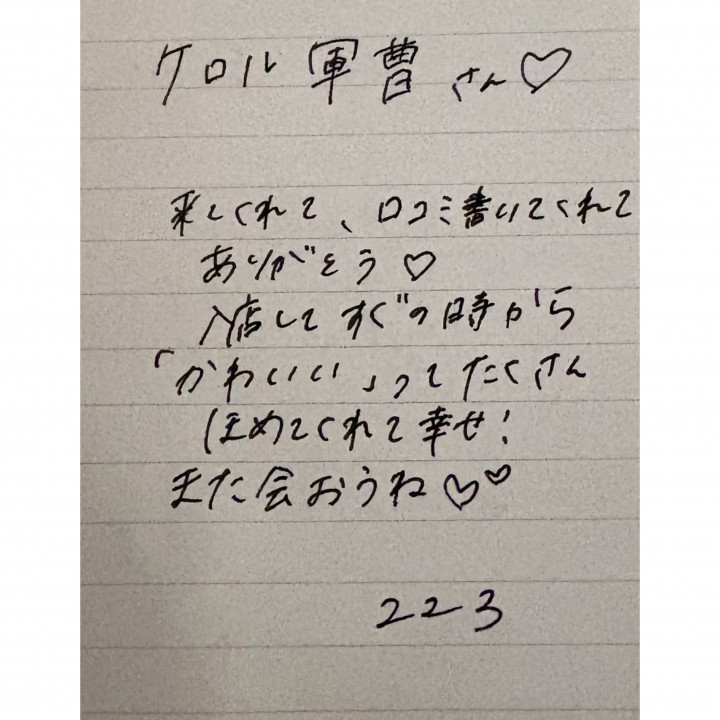 ケロル軍曹さん♡
来てくれて、口コミ書いてくれて
ありがとう♡
入店してすぐの時から
「かわいい」ってたくさん
ほめてくれて幸せ!
また会おうね♡♡
223